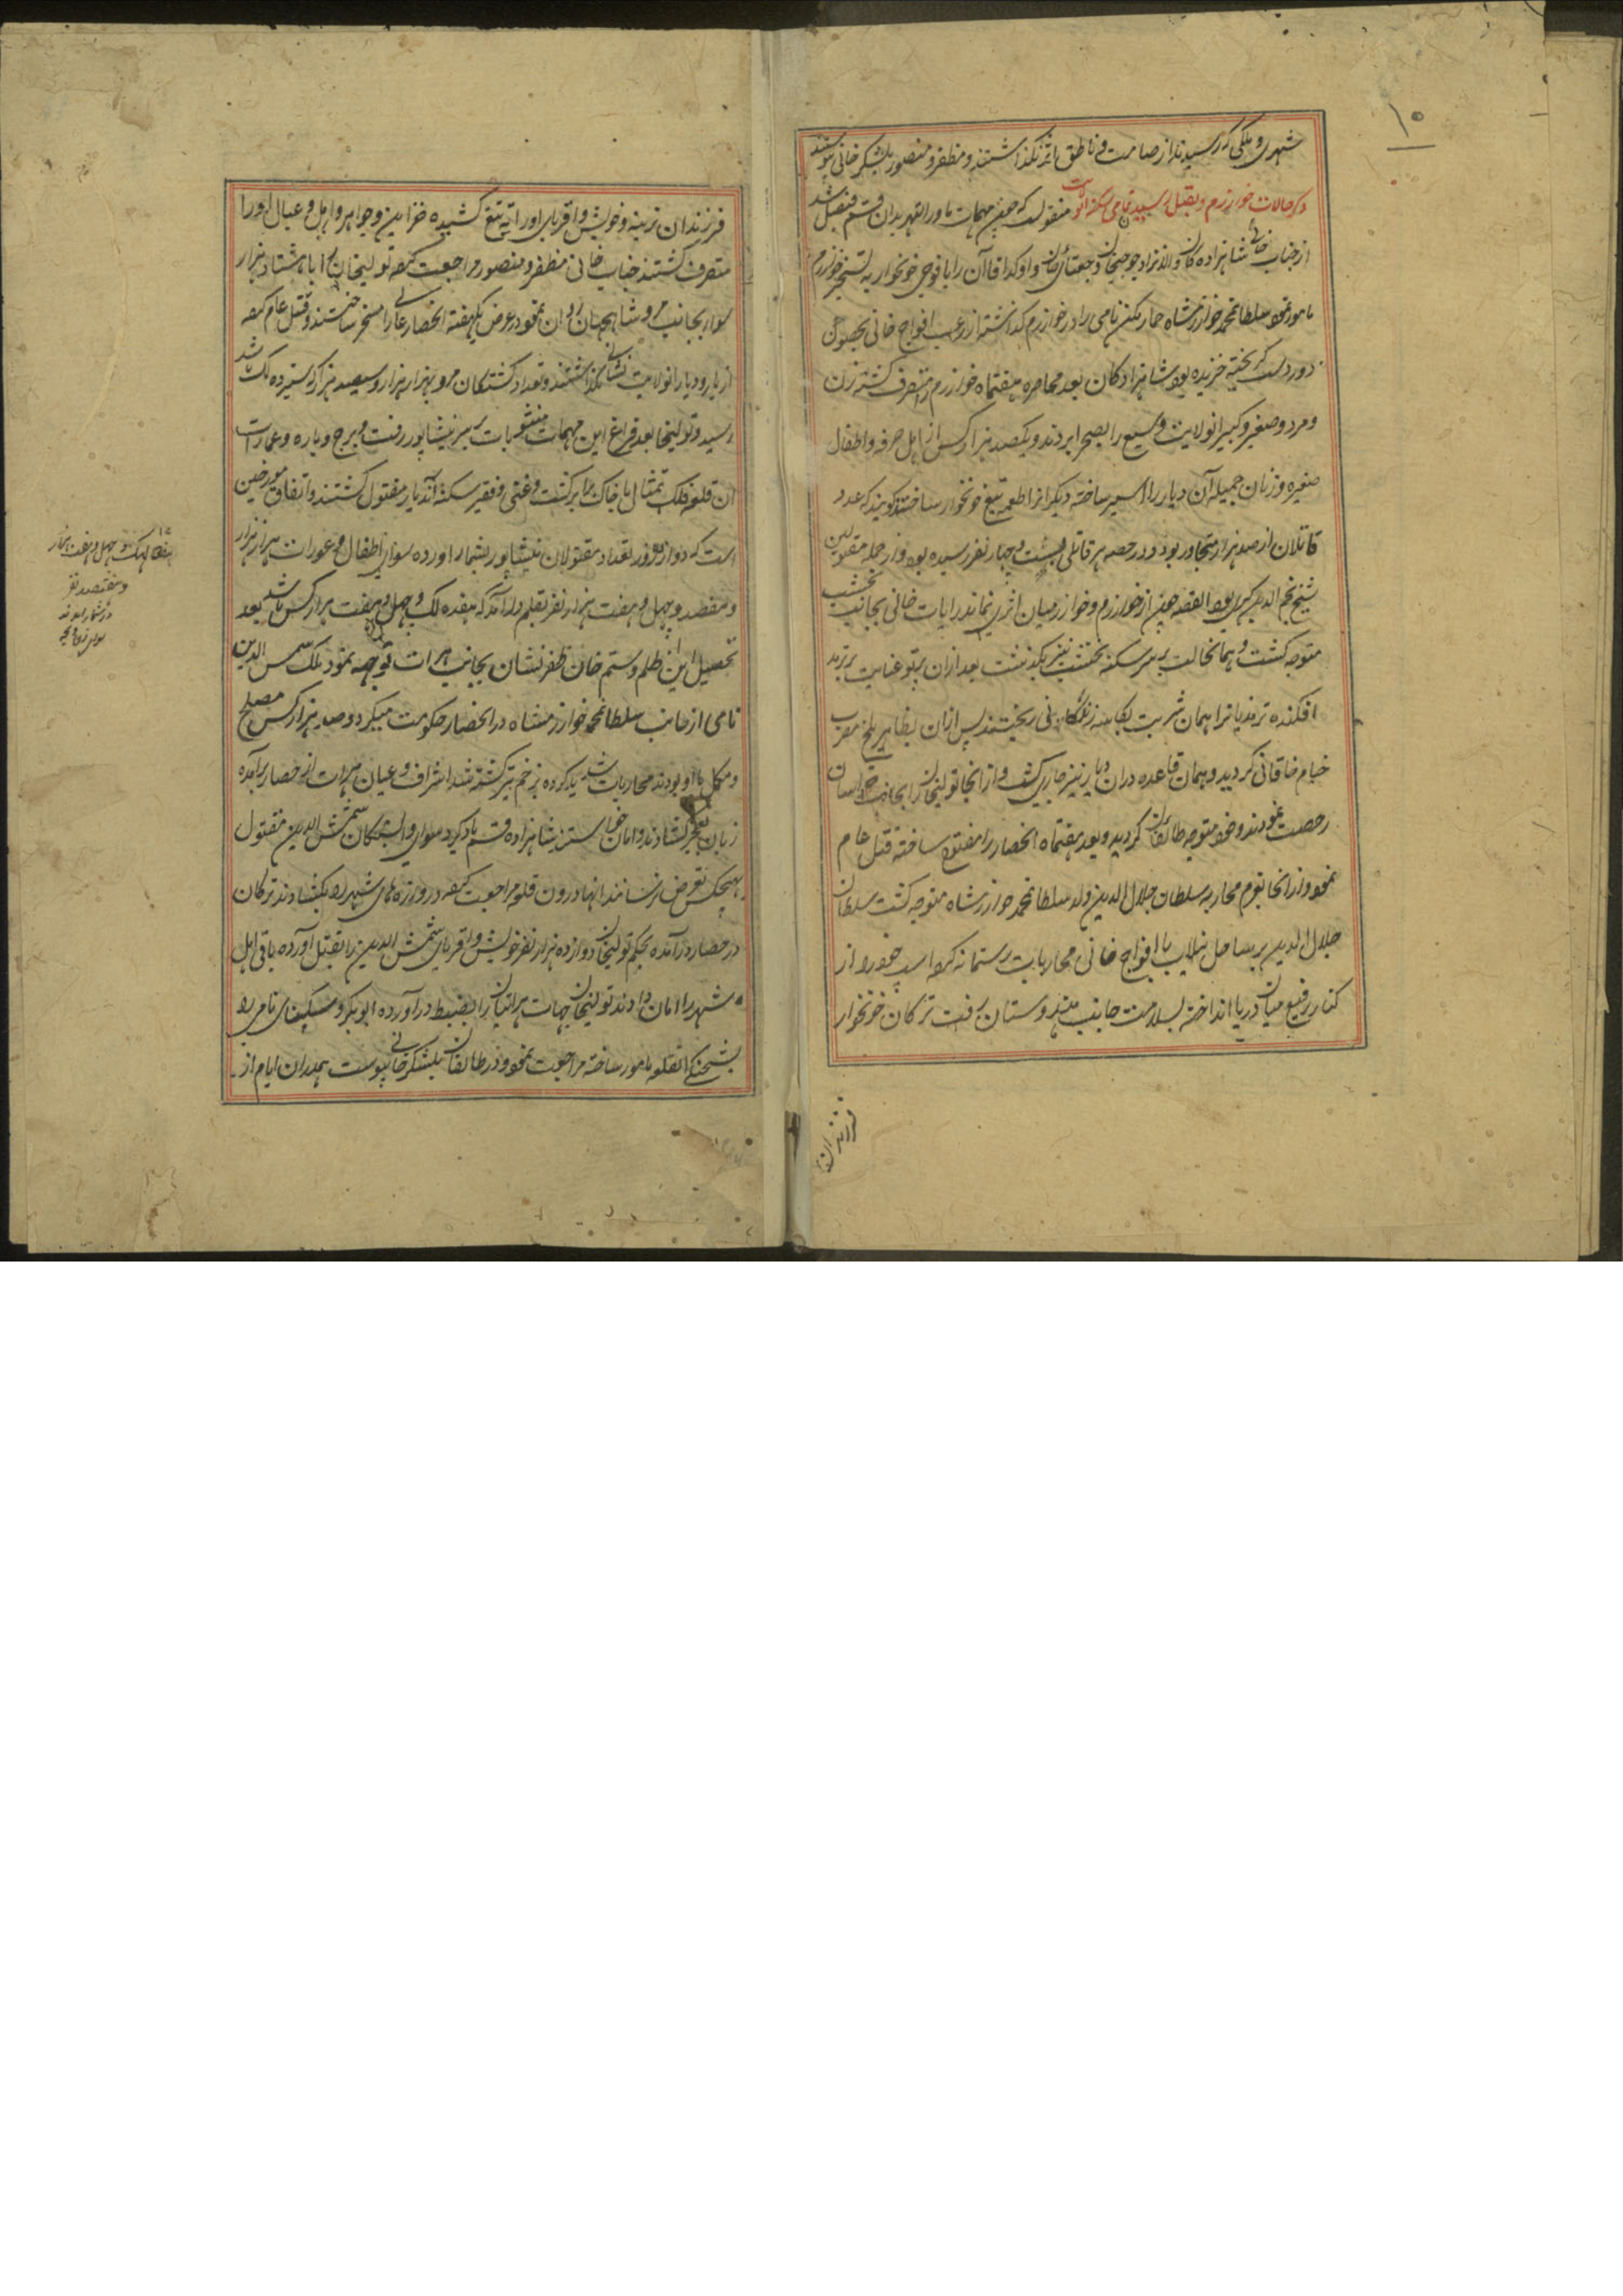 ۱۰
شهری و ملکی که رسیدند از صامت و ناطق اثر نگذاشتند و مظفر و منصور بلشکر خانی پیوستند
ذکر حالات خوارزم و بقتل رسیدن تمامی سکنه آنولایت منقولست که چون مهمات ماورالنهر بدان قسم فیصل شد
از جناب خانی شاهزاده کان والانژاد جوجیخان و جغتای خان و اوکدا قاآن را با فوجی خونخوار به تسخیر خوارزم
مامور نمود سلطان محمد خوارزمشاه خمارتکین نامی را در خوارزم گذاشته از رعب افواج خانی بحصون
دوردست گریخته خزیده بود شاهزادکان بعد محاصره هفتماه خوارزم را متصرف گشته زن
و مرد و صغیر و کبیر آنولایت وسیع را بصحرا بردند و یکصد هزار کس از اهل حرفه و اطفال
صغیره و زنان جمیله آن دیار را اسیر ساخته دیگرانرا طعمه تیغ خونخوار ساختند گویند که عدد
قاتلان از صد هزار متجاوز بود و در حصه هر قاتلی بیست و چهار نفر رسیده بود و از جمله مقتولین
شیخ نجم الدین کبری بود القصه چون از خوارزم و خوارزمیان اثری نماند رایات خانی بجانب نخشب
متوجه گشت و همانحالت بر سر سکنه نخشب نیز بگذشت بعد ازان پرتو عنایت بر ترمد
افکنده ترمدیانرا همان شربت بکاسه زندگانی ریختند پس ازان بظاهر بلخ مضرب
خیام خاقانی گردید و همان قاعده دران دیار نیز جاری گشت و از آنجا تولیخان را بجانب خراسان
رخصت نمودند و خود متوجه طالقان گردید و بعد هفتماه آنحصار را مفتوح ساخته قتل عام
نمود و از آنجا بعزم محاربه سلطان جلال الدین ولد سلطان محمد خوارزمشاه متوجه گشت سلطان
جلال الدین بر ساحل نیلاب با افواج خانی محاربات رستمانه کرده اسپ خود را از
کنار رفیع میان دریا انداخته بسلامت جانب هندوستان رفت ترکان خونخوار
فرزندان
فرزندان نرینه و خویش و اقربای او را ته تیغ کشیده خزاین و جواهر و اهل و عیال او را
متصرف گشتند جناب خانی مظفر و منصور مراجعت کرده تولیخان را با هشتاد هزار
سوار بجانب مرو شاهجهان روان نمود در عرض یکهفته آنحصار عالی را مسخر ساختند و قتل عام کرده
از یار و دیار آنولایت نشانی نگذاشتند و تعداد کشتگان مرو بهزار هزار و سیصد هزار که سیزده لک باشد
رسید و تولیخان بعد فراغ این مهمات بر سر نیشاپور رفت و برج و باره و عمارات
آن قلعه فلک تمثال با خاک برابر گشت و غنی و فقیر سکنه آندیار مقتول گشتند و اتفاق مورخین
است که دوازده روز تعداد مقتولان نیشاپور بشمار آورده سوای اطفال و عورات هزار هزار
و هفصد و چهل و هفت هزار نفر بقلم درآمد که هفده لک و چهل و هفت هزار کس باشد بعد
تحصیل این ظلم و ستم خان ظفرنشان بجانب هرات توجهه نمود ملک شمس الدین
نامی از جانب سلطان محمد خوارزمشاه در آنحصار حکومت میکرد و صد هزار کس مصلح
و مکمل با او بودند محاربات شدید کرده بزخم تیر کشته شد اشراف و عیان هرات از حصار برآمده
زبان بعجز کشادند و امان خواستند شاهزاده قسم یاد کرد سوای وابستگان شمش الدین مقتول
بهیچکس تعرض نرسانند آنها درون قلعه مراجعت کرده دروازه های شهر را بکشادند ترکان
در حصار درآمده بحکم تولیخان دوازده هزار نفر خویش و اقربای شمش الدین را بقتل آورده باقی اهل
شهر را امان دادند تولیخان جهات هراتیان را بضبط درآورده ابوبکر و منکتای نامی را
بشحنگی آنقلعه مامور ساخته مراجعت نمود و در طالقان بلشکر خانی پیوست همدران ایام از
هفده لک و چهل و هفت هزار
و هفتصد نفر
در شمار آمدند
سوای زن و بچه